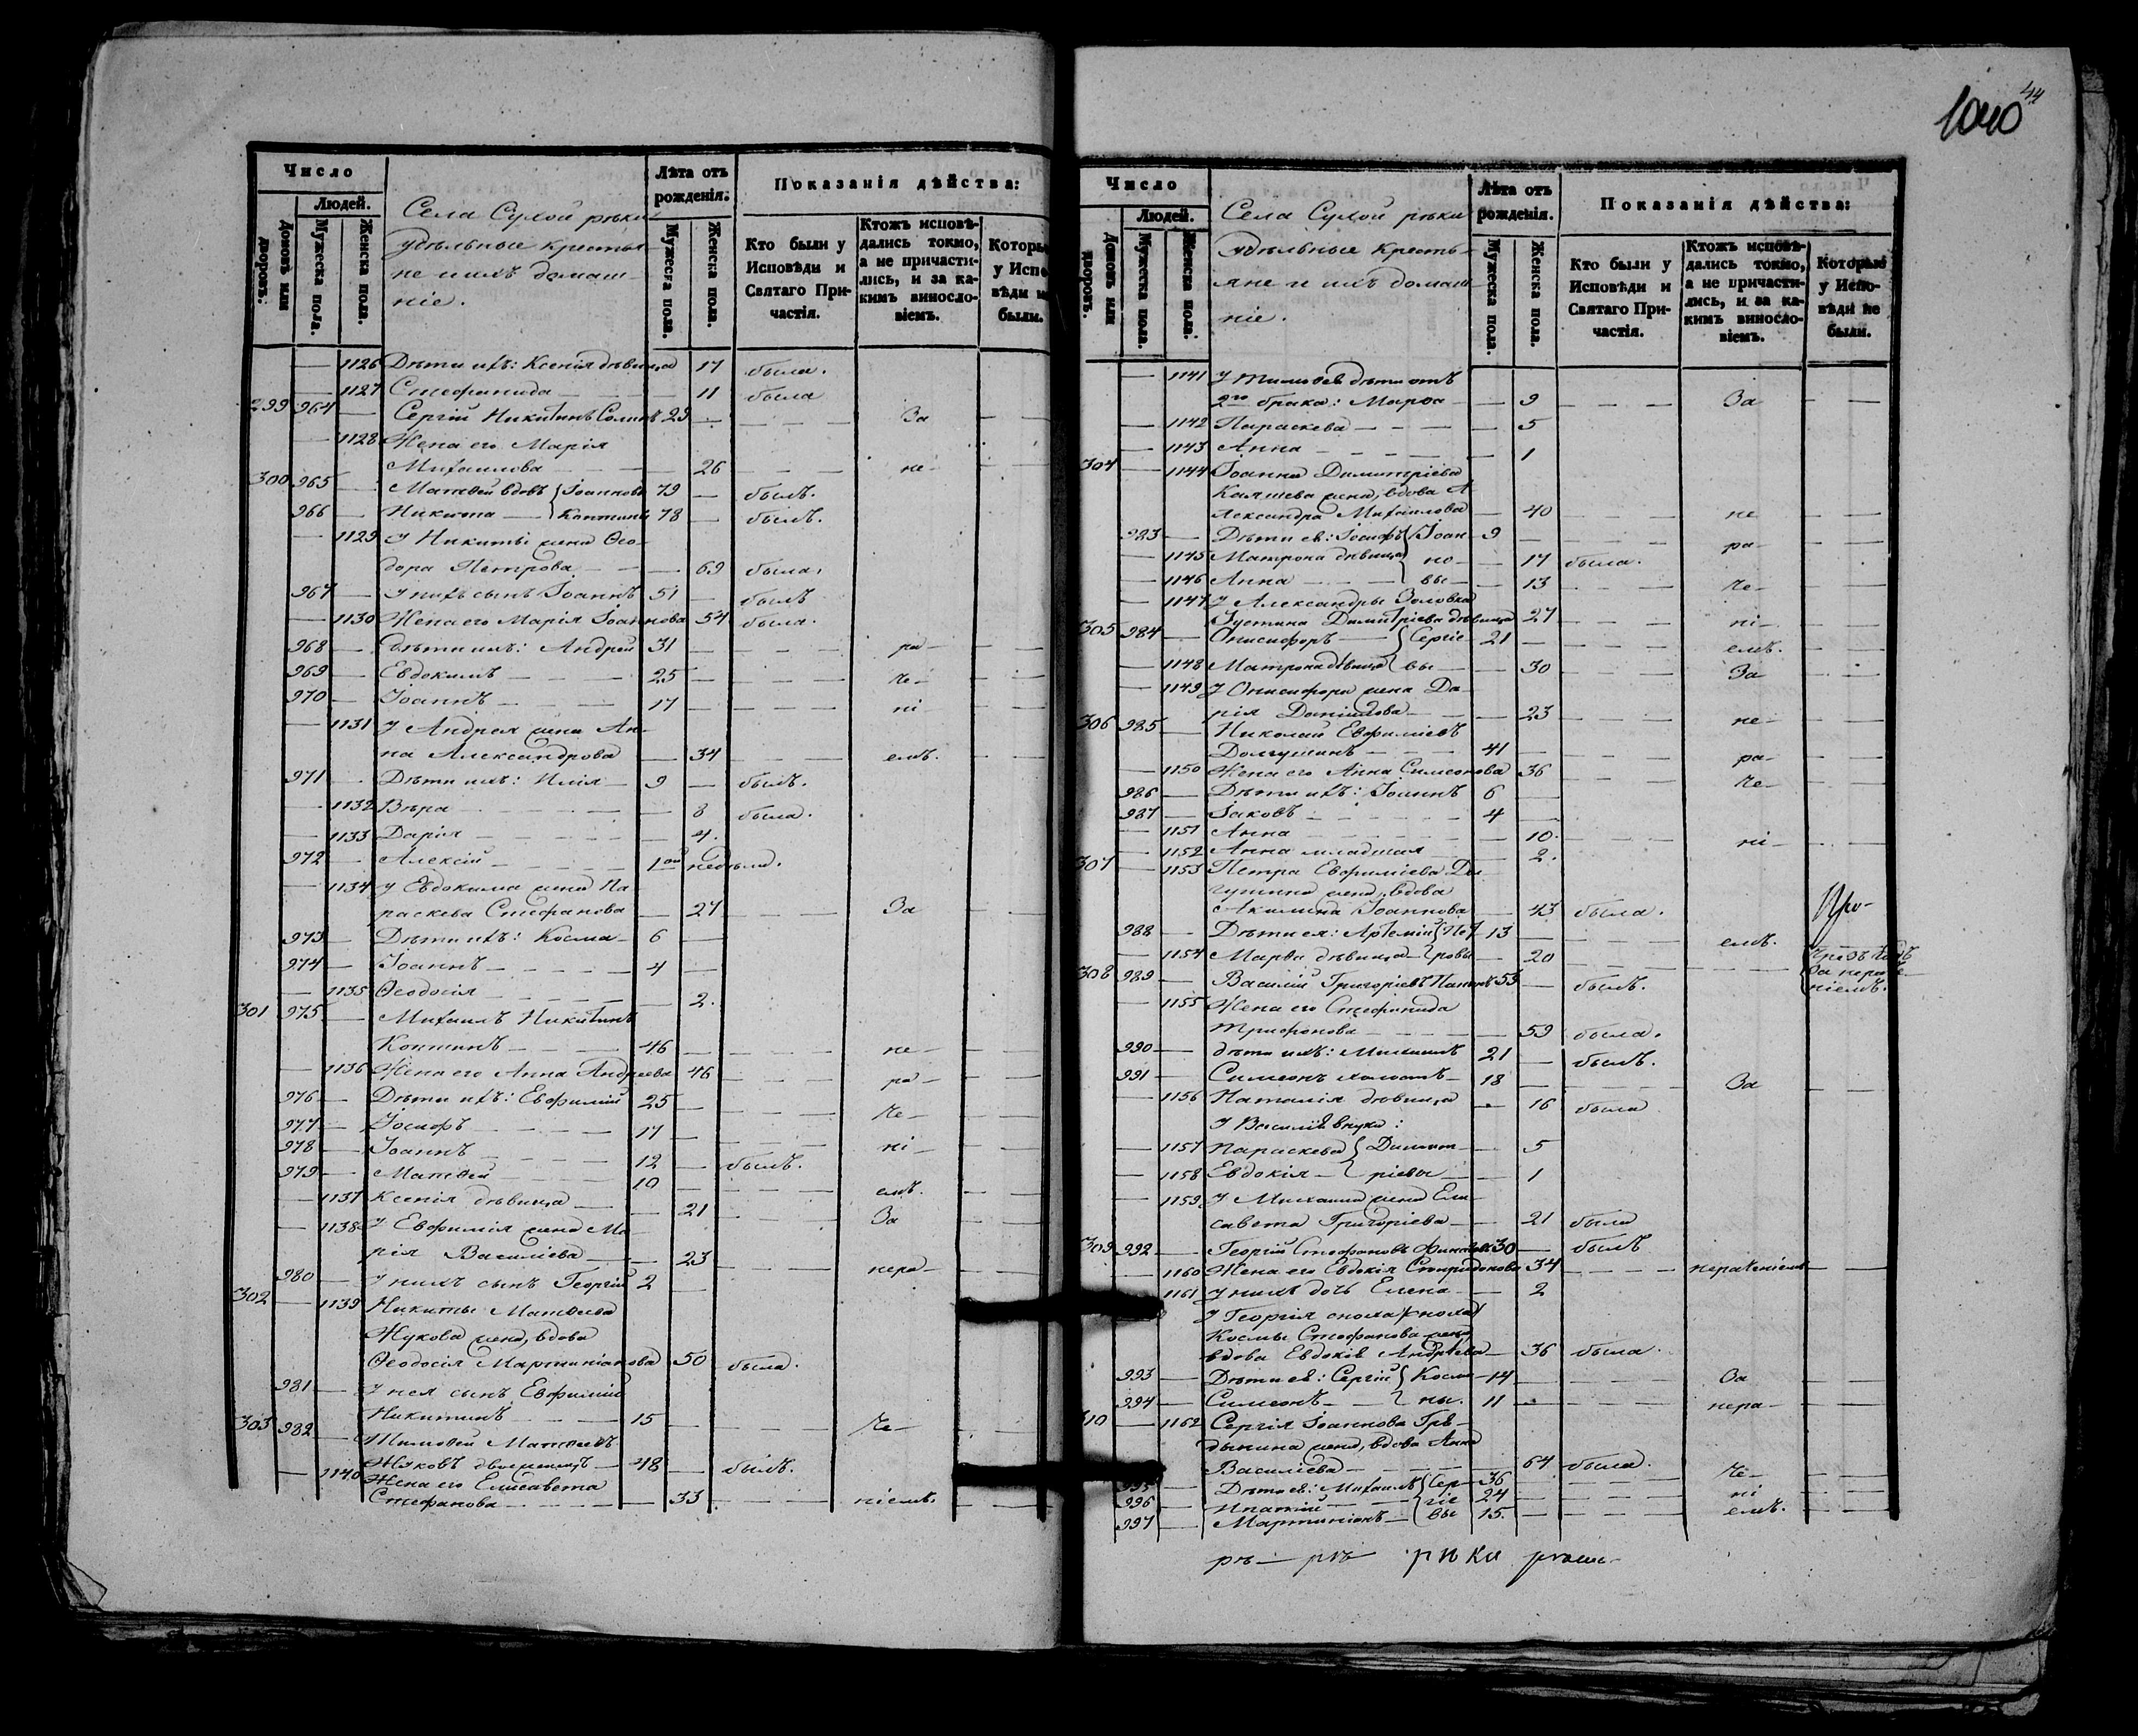 1040
44
Число
Людей.
Домовъ или дворовъ.
Мужеска пола.
Женска пола.
Села Сухой рѣки
удѣльные крестья-
не и ихъ домаш-
ніе.
Лѣта отъ рожденія.
Мужеска пола.
Женска пола.
Показанія дѣйства:
Кто были у Исповѣди и Святаго При-частія.
Ктожъ исповѣ-дались токмо, а не причасти-лись, и за ка-кимъ винosло-віемъ.
Которые у Испо-вѣди не были.
— 1126 Дѣти ихъ: Ксенія дѣвица 17 была.
— 1127 Стефанида — — 11 была
299 964 — Сергій Никитинъ 29 — — — За — —
— 1128 Жена его Марія
Михаилова — — 26 — — не — —
300 965 — Матвей вдовъ Іоанновы 79 — былъ.
966 — Никита — Коптины 78 — былъ.
— 1129 У Никиты жена Ѳео-
дора Петрова — — 69 была.
967 — У нихъ сынъ Іоаннъ 51 — былъ
— 1130 Жена его Марія Іоаннова 54 была.
968 — Дѣти ихъ: Андрей 31 — — — ра — —
969 — Евдокимъ — — 25 — — — че — —
970 — Іоаннъ — — 17 — — — ні — —
— 1131 У Андрея жена Ан-
на Александрова — 34 — — емъ. — —
971 — Дѣти ихъ: Илія — 9 — былъ.
— 1132 Вѣра — 8 была.
— 1133 Дарія — — — 4.
972 — Алексій — — 1ой недѣли.
— 1134 У Евдокима жена Па-
раскева Стефанова — 27 — — За — —
973 — Дѣти ихъ: Косма — 6 —
974 — Іоаннъ — — — 4 —
— 1135 Ѳеодосія — — — 2.
301 975 — Михаилъ Никитинъ
Коптинъ — — 46 — — — не — —
— 1136 Жена его Анна Андреева 46 — — ра — —
976 — Дѣти ихъ: Евфимій 25 — — — че — —
977 — Іосифъ — — 17 — — — ні — —
978 — Іоаннъ — — 12 — былъ.
979 — Матвей — — 10 — — — емъ. — —
— 1137 Ксенія дѣвица — 21 — — За — —
— 1138 У Евфимія жена Ма-
рія Василіева — 23 — — нера — —
980 — У нихъ сынъ Георгій 2 —
302 — 1139 Никиты Матвеева
Жукова жена, вдова
Ѳеодосія Мартиніанова 50 была.
981 — У нея сынъ Евфимій
Никитинъ — — 15 — — — че — —
303 982 — Тимофей Матвеевъ
Жуковъ двоеженецъ — 48 — былъ.
— 1140 Жена его Елисавета
Стефанова — — — 33 — — ніемъ. — —
Число
Людей.
Домовъ или дворовъ.
Мужеска пола.
Женска пола.
Села Сухой рѣки
удѣльные кресть-
яне и ихъ домаш-
ніе.
Лѣта отъ рожденія.
Мужеска пола.
Женска пола.
Показанія дѣйства:
Кто были у Исповѣди и Святаго При-частія.
Ктожъ исповѣ-дались токмо, а не причасти-лись, и за ка-кимъ винosло-віемъ.
Которые у Испо-вѣди не были.
— 1141 У Тимофея дѣти отъ
2го брака: Марѳа — — 9 — — — За — —
— 1142 Параскева — — — 5
— 1143 Анна — — — 1
304 — 1144 Іоанна Димитріева
жена, вдова А-
лександра Михаилова — 40 — — не — —
983 — Дѣти ея: Іосифъ Іоан- 9 — — — ра — —
— 1145 Матрона дѣвица но- 17 была.
— 1146 Анна — — вы — 13 — — че — —
— 1147 У Александры золовка
Іустина Димитріева дѣвица 27 — — ні — —
305 984 — Онисифоръ — Сергіе- 21 — — — емъ. — —
— 1148 Матрона дѣвица вы — 30 — — За — —
— 1149 У Онисифора жена Да-
рія Даніилова — 23 — — не — —
306 985 — Николай Евфиміевъ
Долгушинъ — — 41 — — — ра — —
— 1150 Жена его Анна Симеонова 36 — — че — —
986 — Дѣти ихъ: Іоаннъ 6 —
987 — Іаковъ — — 4 —
— 1151 Анна — — — 10. — — ні — —
— 1152 Анна младшая — 2.
307 — 1153 Петра Евфиміева До-
гушина жена, вдова
Акилина Іоаннова — 43 была.
988 — Дѣти ея: Артемій Пет- 13 — — — емъ. — —
— 1154 Марѳа дѣвица — ровы — 20 — — —
за нераче-
ніемъ.
308 989 — Василій Григоріевъ 59 — былъ.
— 1155 Жена его Стефанида
Трифонова — — 59 была.
990 — дѣти ихъ: Михаилъ 21 — былъ.
991 — Симеонъ холостъ — 18 — — — За — —
— 1156 Наталія дѣвица — 16 была
У Василія внуки:
— 1157 Параскева Димит- — 5
— 1158 Евдокія — ріевы — 1
— 1159 У Михаила жена Ели-
савета Григоріева — 21 была
309 992 — Георгій Стефановъ 30 — былъ
— 1160 Жена его Евдокія Спиридонова 34 — — нераченіемъ — —
1161 У нихъ дочь Елена — 2
У Георгія сноха
Космы Стефанова жена
вдова Евдокія Андреева — 36 была.
993 — Дѣти ея: Сергій Косм- 14 — — — За — —
994 — Симеонъ — ны. 11 — — — нера — —
310 — 1162 Сергія Іоаннова Гре-
дынина жена, вдова Анна
Василіева — — — 64 была.
995 — Дѣти ея: Михаилъ Сер- 36 — — — че — —
996 Ипатій — гіе 24 — — — ні — —
997 — Мартиніанъ — вы 15. — — — емъ. — —
рѣ — рѣ рѣки